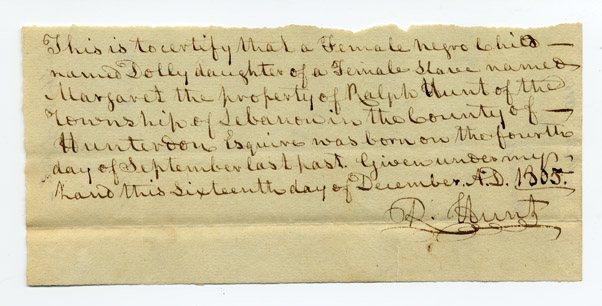 This is to certify that a Female negro Child —
named Dolly daughter of a Female Slave named
Margaret the property of Ralph Hunt of the
Township of Lebanon in the County of —
Hunterdon Esquire was born on the fourth
day of September last past. Given under my
hand this Sixteenth day of December A.D. 1805.
R. Hunt